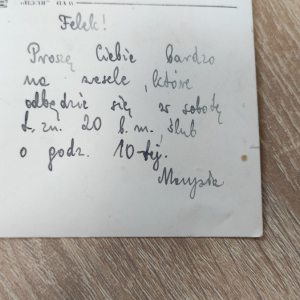 Felek!
Proszę Ciebie bardzo
na wesele, które
odbędzie się w sobotę
t. zn. 20 b.m., ślub
o godz. 10-tej.
Marysia